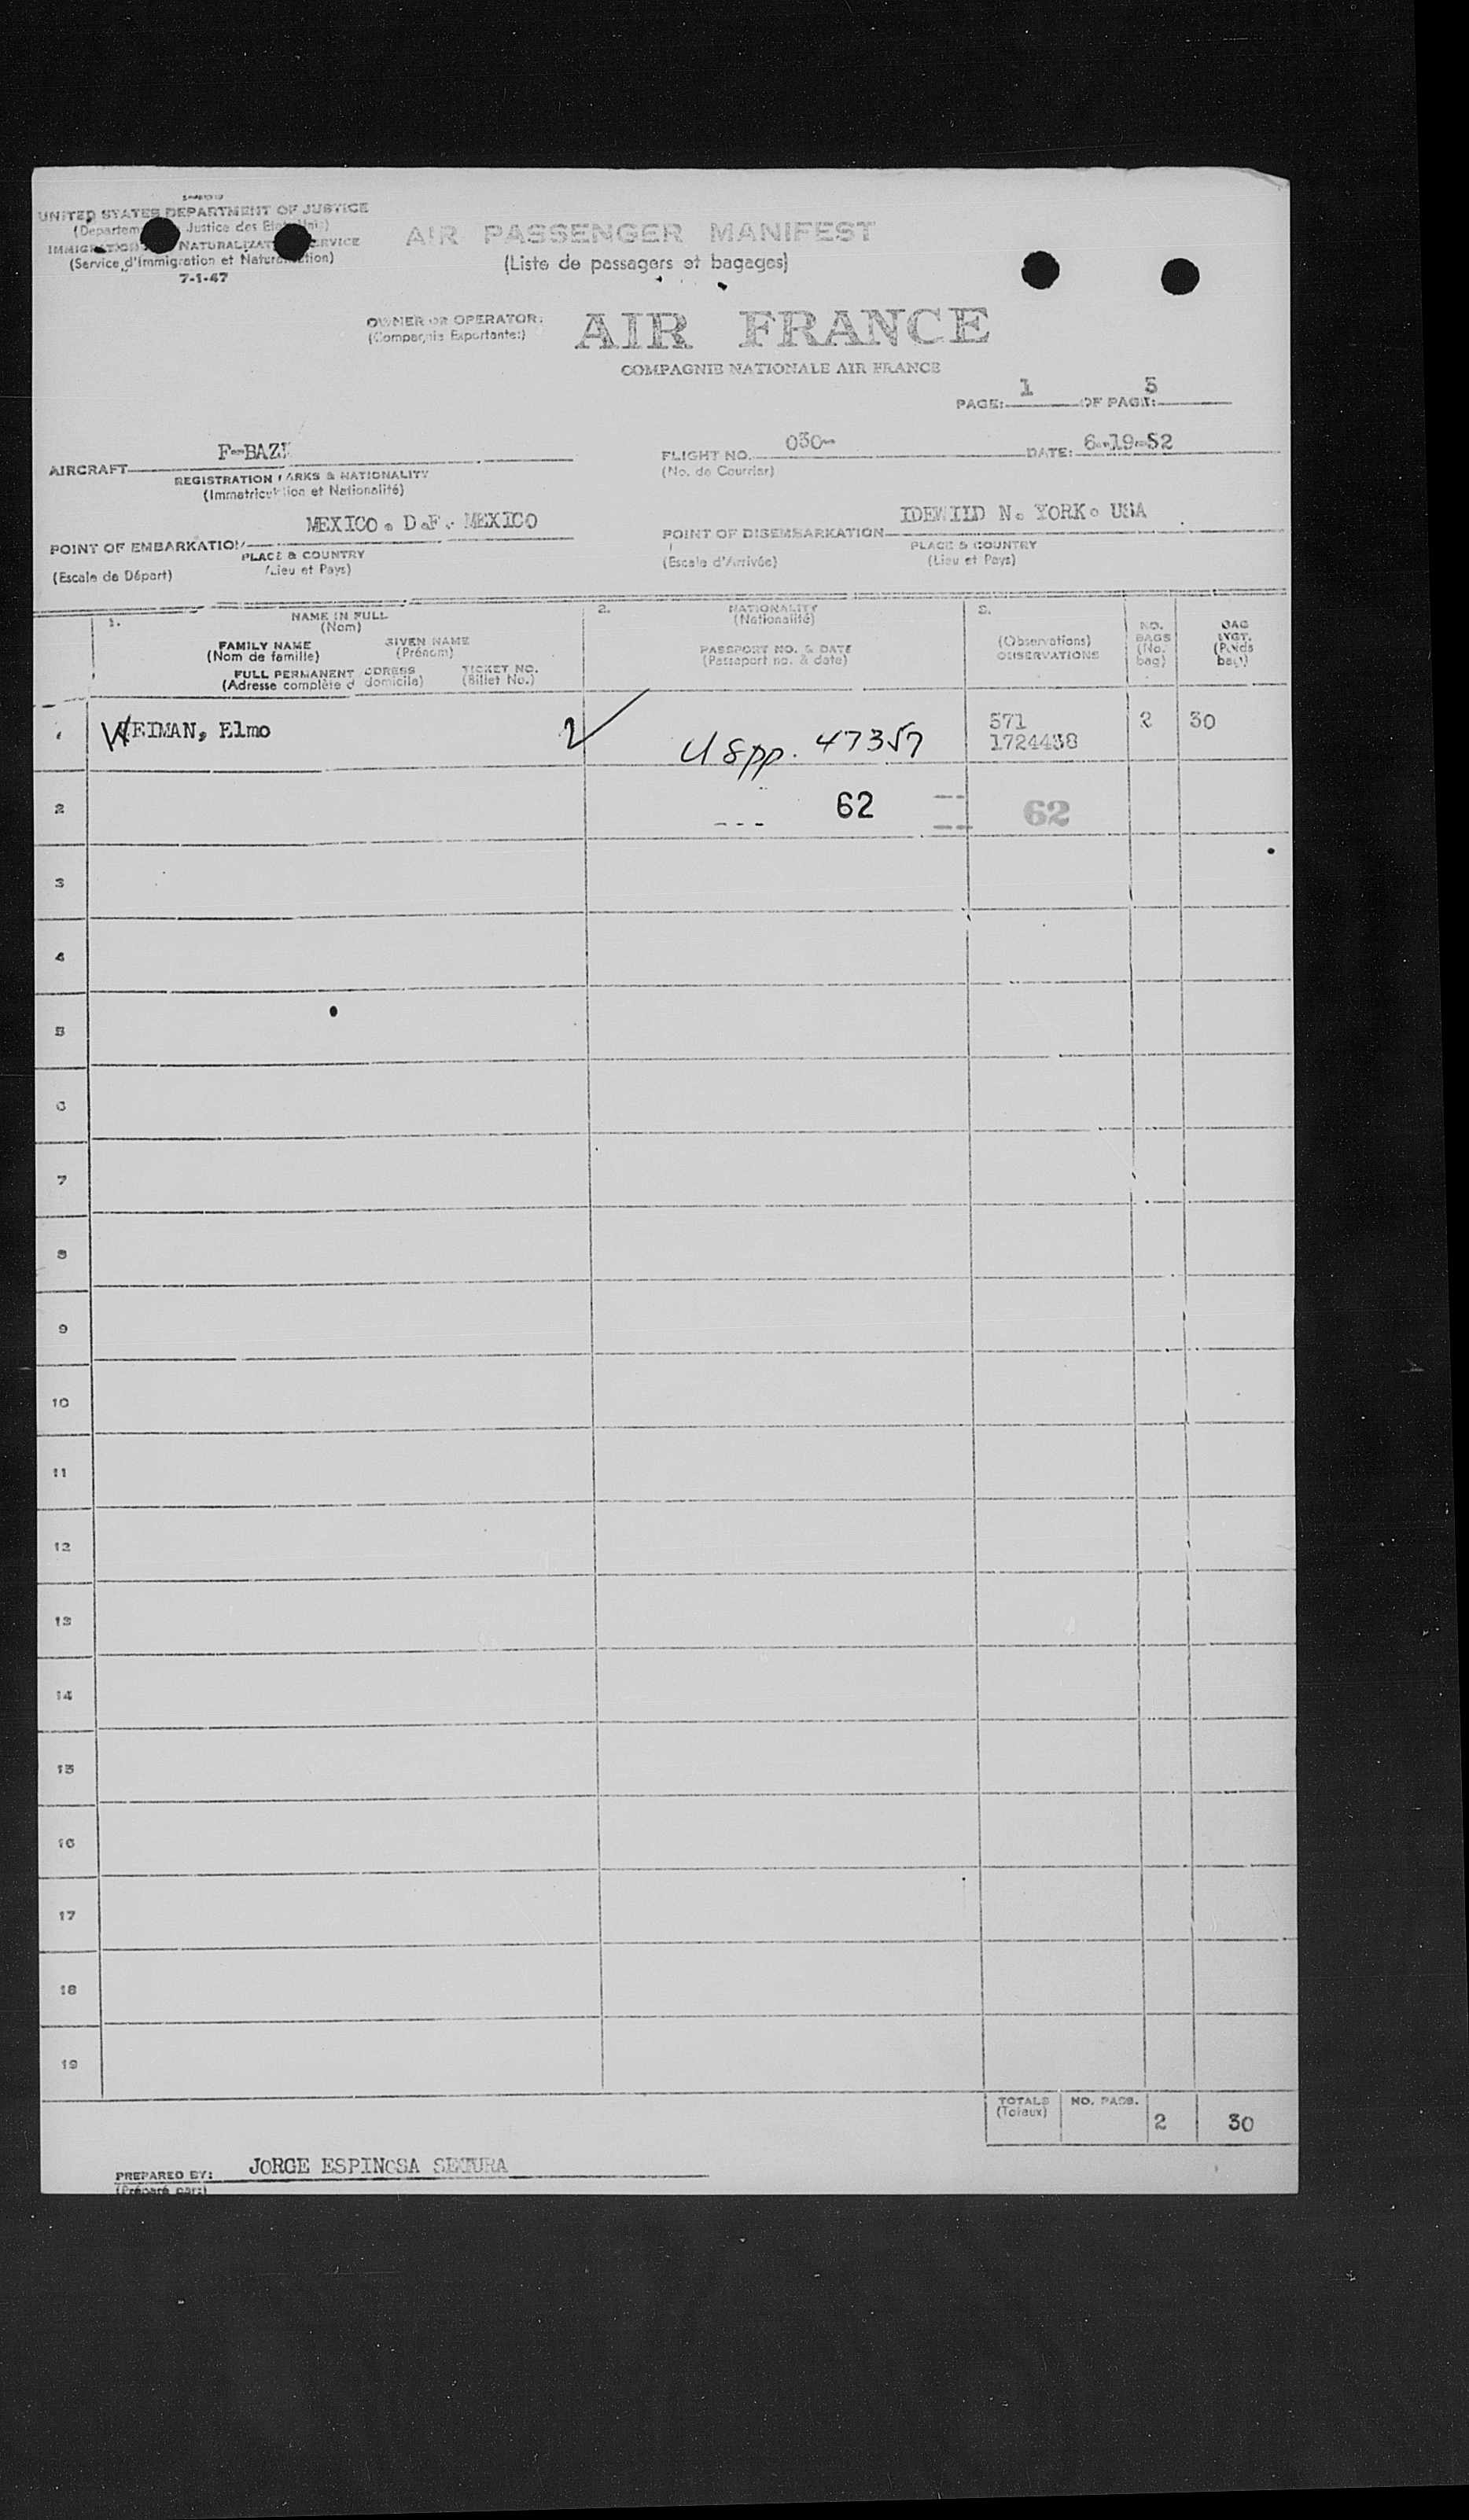 I-466
UNITED STATES DEPARTMENT OF JUSTICE
(Departem Justice des Etats Unis)
IMMIGRATION NATURALIZAT SERVICE
(Service d'Immigration et Naturalisation)
7-1-47
AIR PASSENGER MANIFEST
(Liste de passagers et bagages)
OWNER OR OPERATOR:
(Compagnie Exportante:)
AIR FRANCE
COMPAGNIE NATIONALE AIR FRANCE
PAGE: 1 OF PAGE: 5
AIRCRAFT F-BAZ
REGISTRATION MARKS & NATIONALITY
(Immatriculation et Nationalité)
FLIGHT NO. 030-
(No. de Courrier)
DATE: 6-19-52
POINT OF EMBARKATION MEXICO. D.F. MEXICO
PLACE & COUNTRY
(Lieu et Pays)
(Escale de Départ)
POINT OF DISEMBARKATION IDEWILD N. YORK. USA
PLACE & COUNTRY
(Lieu et Pays)
(Escale d'Arrivée)
1.
NAME IN FULL
(Nom)
FAMILY NAME GIVEN NAME
(Nom de famille) (Prénom)
FULL PERMANENT ADDRESS TICKET NO.
(Adresse complète d domicile) (Billet No.)
2.
NATIONALITY
(Nationalité)
PASSPORT NO. & DATE
(Passeport no. & date)
3.
(Observations)
OBSERVATIONS
NO. BAGS
(No. bag)
BAG WGT.
(Poids bag)
1 WEIMAN, Elmo 2 US pp. 47357 571 2 30
1724438
2 62 62
3
4
5
6
7
8
9
10
11
12
13
14
15
16
17
18
19
TOTALS NO. PASS. 2 30
(Totaux)
PREPARED BY: JORGE ESPINOSA SEGURA
(Préparé par:)